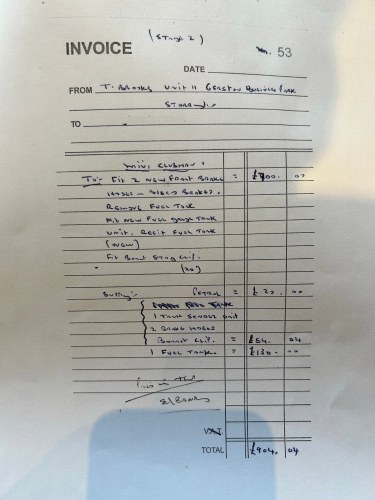 (STAGE 2)
INVOICE
No. 53
DATE
FROM T. Brooks Unit 11 Business Park
TO
Mini Clubman
To:- Fit 2 New Front Brake = £700. 00
Hoses - Bleed Brakes.
Remove Fuel Tank
Fit New Fuel Gauge Tank
Unit. Refit Fuel Tank
(New)
Fit Bonnet Stay Clip.
Petrol = £20. 00
1 Tank Sender Unit
2 Brake Hoses
Bonnet Clip. = £54. 04
1 Fuel Tank = £130. 00
Paid in Full
VAT
TOTAL £904. 04